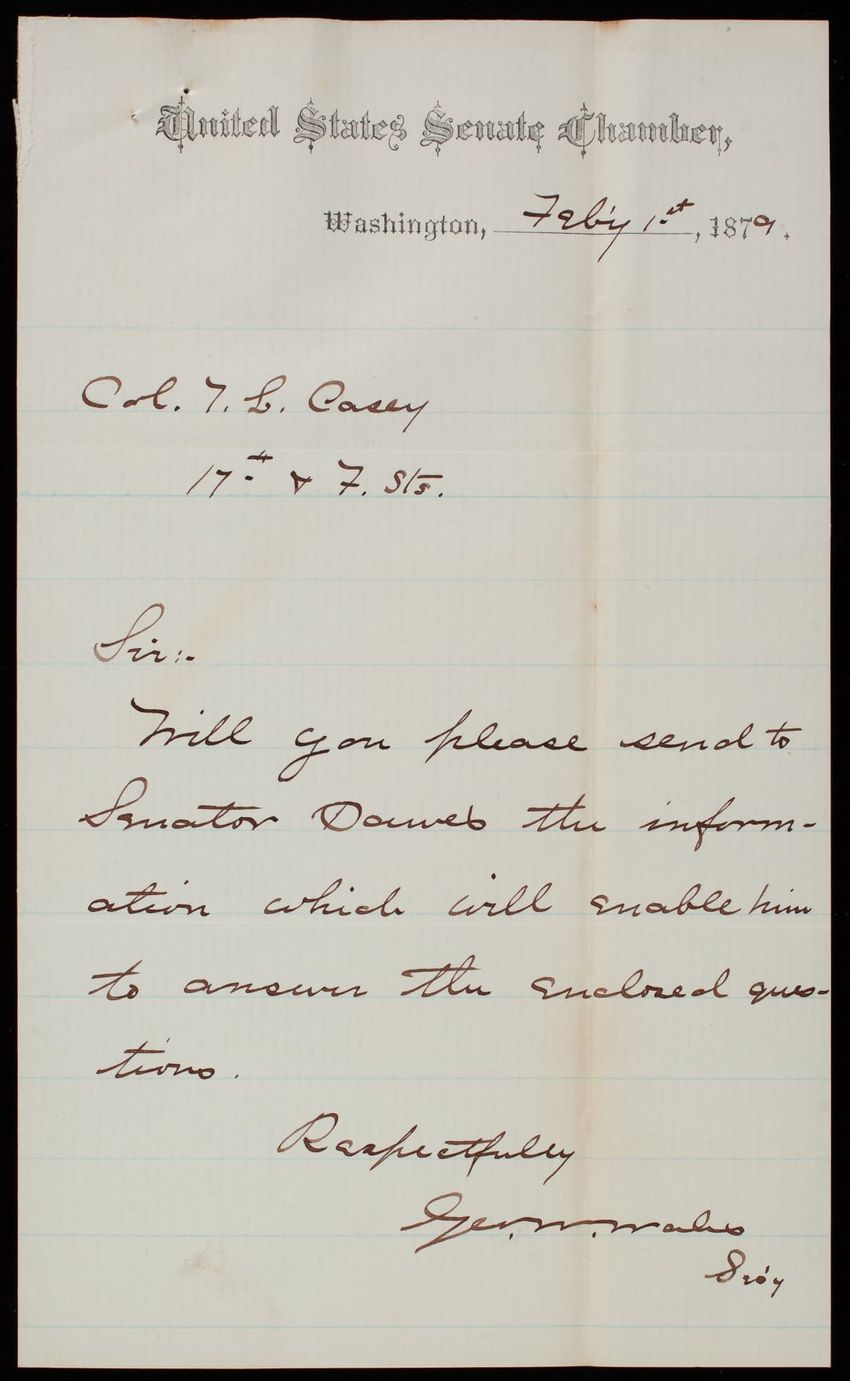 United States Senate Chamber,
Washington, Feb'y 1st, 1879.
Col. T. L. Casey
17th & F. Sts.
Sir:-
Will you please send to
Senator Dawes the inform-
ation which will enable him
to answer the enclosed ques-
tions.
Respectfully
Geo. W. Wales
Sec'y